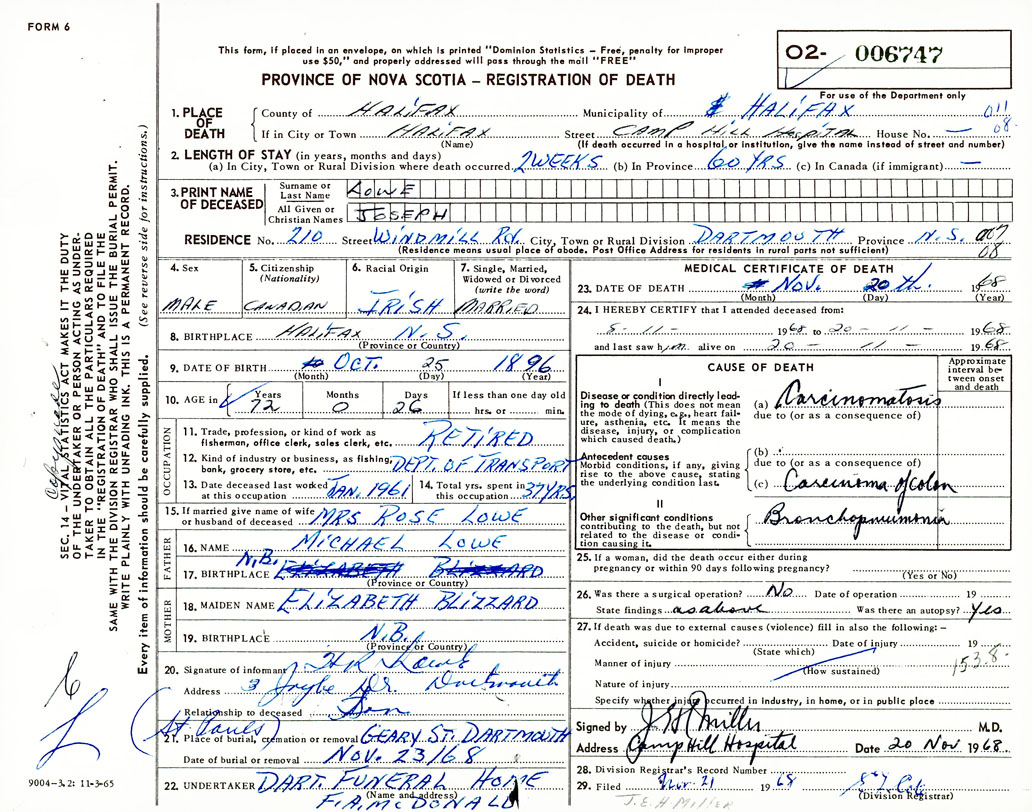 FORM 6
This form, if placed in an envelope, on which is printed "Dominion Statistics – Free, penalty for improper
use $50," and properly addressed will pass through the mail "FREE"
O2- 006747
PROVINCE OF NOVA SCOTIA – REGISTRATION OF DEATH
For use of the Department only
1. PLACE OF DEATH
County of HALIFAX Municipality of HALIFAX 011
If in City or Town HALIFAX Street CAMP HILL HOSPITAL House No. — 08
(Name) (If death occurred in a hospital or institution, give the name instead of street and number)
2. LENGTH OF STAY (in years, months and days)
(a) In City, Town or Rural Division where death occurred 2 WEEKS (b) In Province 60 YRS. (c) In Canada (if immigrant) —
3. PRINT NAME OF DECEASED
Surname or Last Name LOWE
All Given or Christian Names JOSEPH
RESIDENCE No. 210 Street WINDMILL Rd. City, Town or Rural Division DARTMOUTH Province N.S. 007
(Residence means usual place of abode. Post Office Address for residents in rural parts not sufficient) 08
4. Sex MALE
5. Citizenship (Nationality) CANADIAN
6. Racial Origin IRISH
7. Single, Married, Widowed or Divorced (write the word) MARRIED
8. BIRTHPLACE HALIFAX N.S.
(Province or Country)
9. DATE OF BIRTH OCT. 25 1896
(Month) (Day) (Year)
10. AGE in Years 72 Months 0 Days 26 If less than one day old hrs. or min.
OCCUPATION
11. Trade, profession, or kind of work as fisherman, office clerk, sales clerk, etc. RETIRED
12. Kind of industry or business, as fishing, bank, grocery store, etc. DEPT. OF TRANSPORT
13. Date deceased last worked at this occupation JAN. 1961
14. Total yrs. spent in this occupation 37 YRS.
15. If married give name of wife or husband of deceased MRS ROSE LOWE
FATHER
16. NAME MICHAEL LOWE
17. BIRTHPLACE N.B. ELIZABETH BLIZZARD
(Province or Country)
MOTHER
18. MAIDEN NAME ELIZABETH BLIZZARD
19. BIRTHPLACE N.B.
(Province or Country)
20. Signature of informant Lowe
Address 3 Dr. Dartmouth
Relationship to deceased Son
(St. Pauls)
21. Place of burial, cremation or removal GEARY ST. DARTMOUTH
Date of burial or removal NOV. 23/68
22. UNDERTAKER DART. FUNERAL HOME
(Name and address)
F.A. McDONALD
9004-3.2: 11-3-65
MEDICAL CERTIFICATE OF DEATH
23. DATE OF DEATH Nov. 20 th. 1968
(Month) (Day) (Year)
24. I HEREBY CERTIFY that I attended deceased from:
8 - 11 - 1968 to 20 - 11 - 1968
and last saw him alive on 20 - 11 - 1968
CAUSE OF DEATH
Approximate interval between onset and death
I
Disease or condition directly leading to death (This does not mean the mode of dying, e.g., heart failure, asthenia, etc. It means the disease, injury, or complication which caused death.)
(a) Carcinomatosis
due to (or as a consequence of)
Antecedent causes
Morbid conditions, if any, giving rise to the above cause, stating the underlying condition last.
(b)
due to (or as a consequence of)
(c) Carcinoma of colon
II
Other significant conditions contributing to the death, but not related to the disease or condition causing it.
Bronchopneumonia
25. If a woman, did the death occur either during
pregnancy or within 90 days following pregnancy?
(Yes or No)
26. Was there a surgical operation? No Date of operation 19
State findings as above Was there an autopsy? Yes
27. If death was due to external causes (violence) fill in also the following: –
Accident, suicide or homicide? Date of injury 19
(State which)
Manner of injury 153.8
(How sustained)
Nature of injury
Specify whether injury occurred in Industry, in home, or in public place
Signed by J.E.H. Miller M.D.
Address Camp Hill Hospital Date 20 Nov 1968.
28. Division Registrar's Record Number
29. Filed Nov. 21 1968
(Division Registrar)
J.E.H MILLER
SEC. 14 – VITAL STATISTICS ACT MAKES IT THE DUTY
OF THE UNDERTAKER OR PERSON ACTING AS UNDER-
TAKER TO OBTAIN ALL THE PARTICULARS REQUIRED
IN THE "REGISTRATION OF DEATH" AND TO FILE THE
SAME WITH THE DIVISION REGISTRAR WHO SHALL ISSUE THE BURIAL PERMIT.
WRITE PLAINLY WITH UNFADING INK. THIS IS A PERMANENT RECORD.
Every item of information should be carefully supplied. (See reverse side for instructions.)